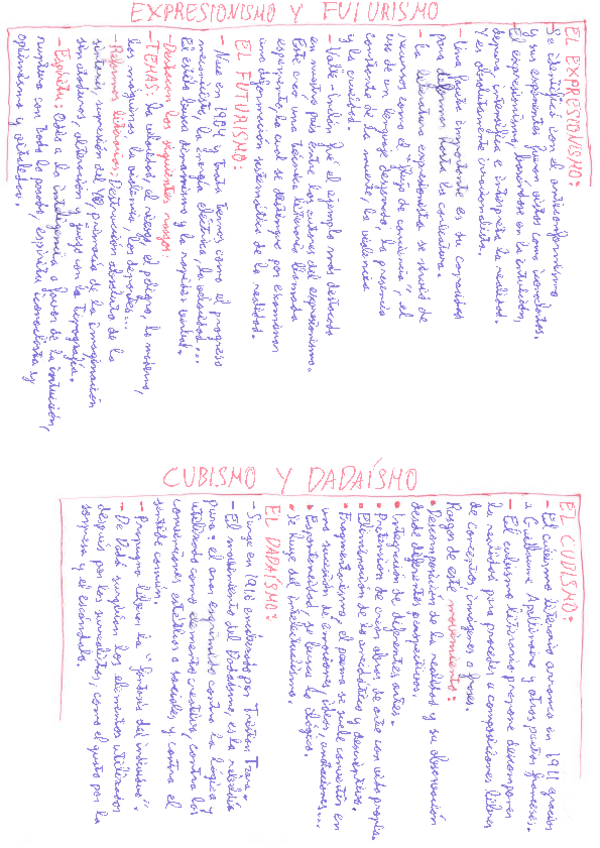 EXPRESIONISMO Y FUTURISMO
EL EXPRESIONISMO:
- Se identificó con el anticonformismo
y sus exponentes fueron vistos como
- El expresionismo, basándose en la intuición,
depura, intensifica e interpreta la realidad.
Y es absolutamente
- Una figura importante es su capacidad
para deformar hasta la caricatura.
- La literatura expresionista se sirvió de
recursos como el "flujo de conciencia", el
uso de un lenguaje desgarrado, la presencia
constante de la muerte, la violencia
y la crueldad.
- Valle-Inclán fué el ejemplo más destacado
en nuestro país entre los autores del expresionismo.
Este creó una técnica literaria llamada
esperpento, la cual se distingue por
una deformación sistemática de la realidad.
EL FUTURISMO:
- Nace en 1984 y trata temas como el progreso
la energía eléctrica, la velocidad...
El estilo busca dinamismo y la rapidez verbal.
- Destacan los siguientes rasgos:
- TEMAS: la velocidad, el riesgo, el peligro, lo moderno,
las máquinas, la violencia, los deportes...
- Reformas literarias: Destrucción absoluta de la
sintaxis, supresión del YO, primacía de la imaginación
sin ataduras, alteración y juego con la tipografía.
- Espíritu: Odio a la inteligencia a favor de la intuición,
ruptura con todo lo pasado, espíritu iconoclasta y
optimismo y vitalidad.
CUBISMO Y DADAÍSMO
EL CUBISMO:
- El cubismo literario arranca en 1911 gracias
a Guillaume Apollinaire y otros poetas franceses.
- El cubismo literario propone descomponer
la realidad para proceder a composiciones libres
de conceptos, imágenes o frases.
Rasgos de este movimiento:
• Decomposición de la realidad y su observación
desde diferentes perspectivas.
• Integración de diferentes artes.
• Pretensión de crear obras de arte con vida propia.
• Eliminación de lo anecdótico y descriptivo.
• Fragmentarismo, el poema se suele convertir en
una sucesión de emociones, ideas, anotaciones...
• Espontaneidad se busca lo ilógico.
• Se huye del intelectualismo.
EL DADAÍSMO:
- Surge en 1916 encabezado por Tristan Tzara.
- El movimiento del Dadaísmo, es la rebeldía
pura: el arma esgrimida contra la lógica y
utilizado como elemento creativo, contra las
convenciones estéticas o sociales, y contra el
sentido común.
- Propugna liberar la "fantasía del individuo".
- De Dadá surgirán los elementos utilizados
después por los surrealistas, como el gusto por la
sorpresa y el escándalo.